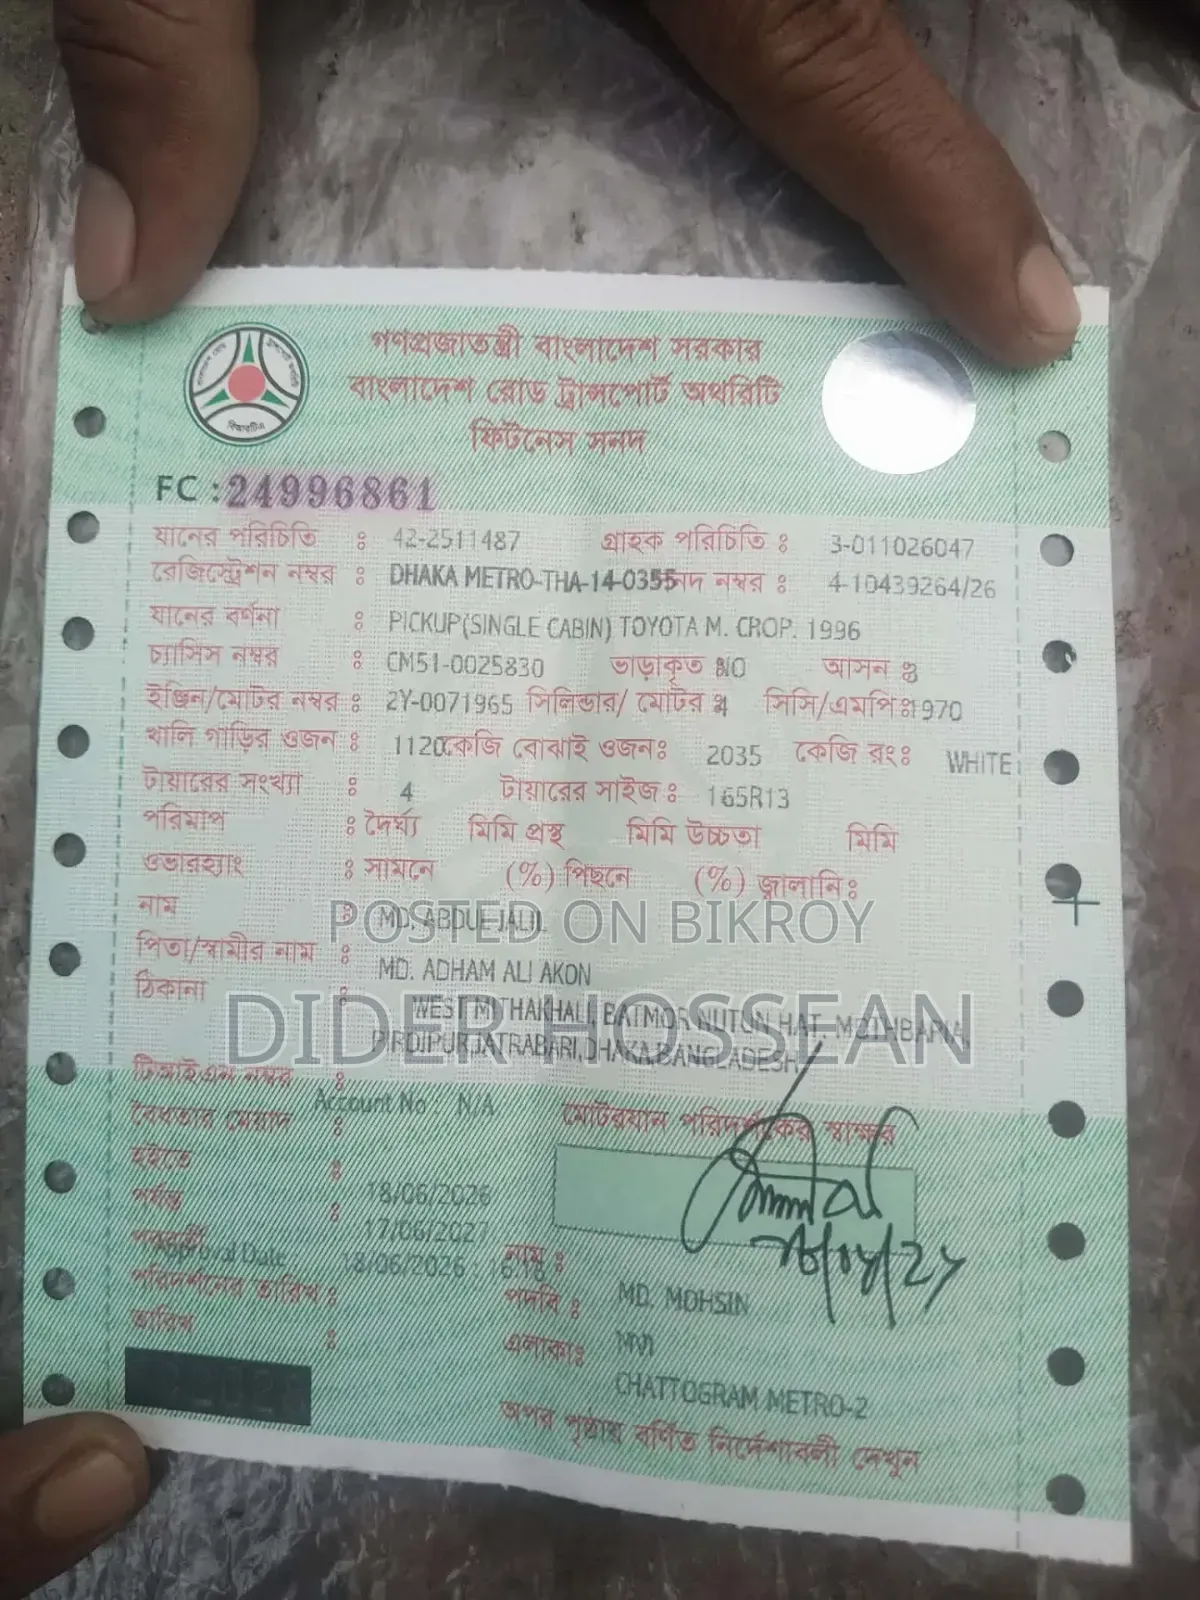 গণপ্রজাতন্ত্রী বাংলাদেশ সরকার
বাংলাদেশ রোড ট্রান্সপোর্ট অথরিটি
ফিটনেস সনদ
FC : 24996861
যানের পরিচিতি : 42-2511487 গ্রাহক পরিচিতি : 3-011026047
রেজিস্ট্রেশন নম্বর : DHAKA METRO-THA-14-0355 নদ নম্বর : 4-10439264/26
যানের বর্ণনা : PICKUP(SINGLE CABIN) TOYOTA M. CROP. 1996
চ্যাসিস নম্বর : CM51-0025830 ভাড়াকৃত : NO আসন : 3
ইঞ্জিন/মোটর নম্বর : 2Y-0071965 সিলিন্ডার/ মোটর : 4 সিসি/এমপি : 1970
খালি গাড়ির ওজন : 1120 কেজি বোঝাই ওজন : 2035 কেজি রং : WHITE
টায়ারের সংখ্যা : 4 টায়ারের সাইজ : 165R13
পরিমাপ : দৈর্ঘ্য মিমি প্রস্থ মিমি উচ্চতা মিমি
ওভারহ্যাং : সামনে (%) পিছনে (%) জ্বালানি :
নাম : MD. ABDUL JALIL
POSTED ON BIKROY
পিতা/স্বামীর নাম : MD. ADHAM ALI AKON
ঠিকানা : WEST MITHAKHALI, BATMOR NUTUN HAT, MOTHBARIA,
DIDER HOSSEAN
PIROJPUR,JATRABARI,DHAKA,BANGLADESH
টিআইএন নম্বর :
Account No : N/A
বৈধতার মেয়াদ : মোটরযান পরিদর্শকের স্বাক্ষর
হইতে : 18/06/2026
পর্যন্ত : 17/06/2027
পরবর্তী
Approval Date 18/06/2026 নাম : MD. MOHSIN
পরিদর্শনের তারিখ : পদবি : MVI
তারিখ : এলাকা : CHATTOGRAM METRO-2
অপর পৃষ্ঠায় বর্ণিত নির্দেশাবলী দেখুন